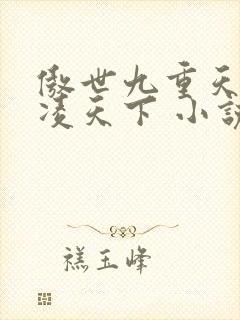 傲世九重天
凌天下 小說
禚玉峰